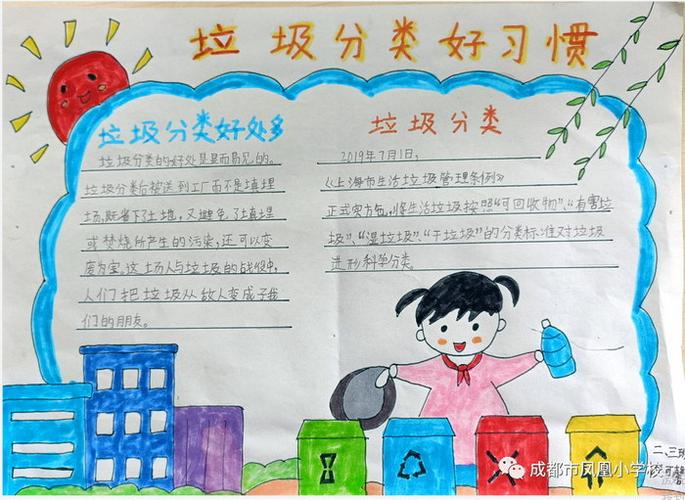 垃圾分类好习惯
垃圾分类好处多
垃圾分类的好处是显而易见的。
垃圾分类后被送到工厂而不是填埋
场,既省下了土地,又避免了填埋
或焚烧所产生的污染,还可以变
废为宝。这场人与垃圾的战役中,
人们把垃圾从敌人变成了我
们的朋友。
垃圾分类
2019年7月1日,
《上海市生活垃圾管理条例》
正式实方包,将生活垃圾按照“可回收物”、“有害垃
圾”、“湿垃圾”、“干垃圾”的分类标准对垃圾
进形科学分类。
二、三班
成都市凤凰小学校